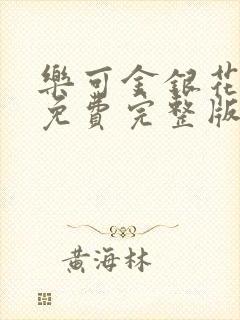 樂可金銀花
免費完整版
黃海林